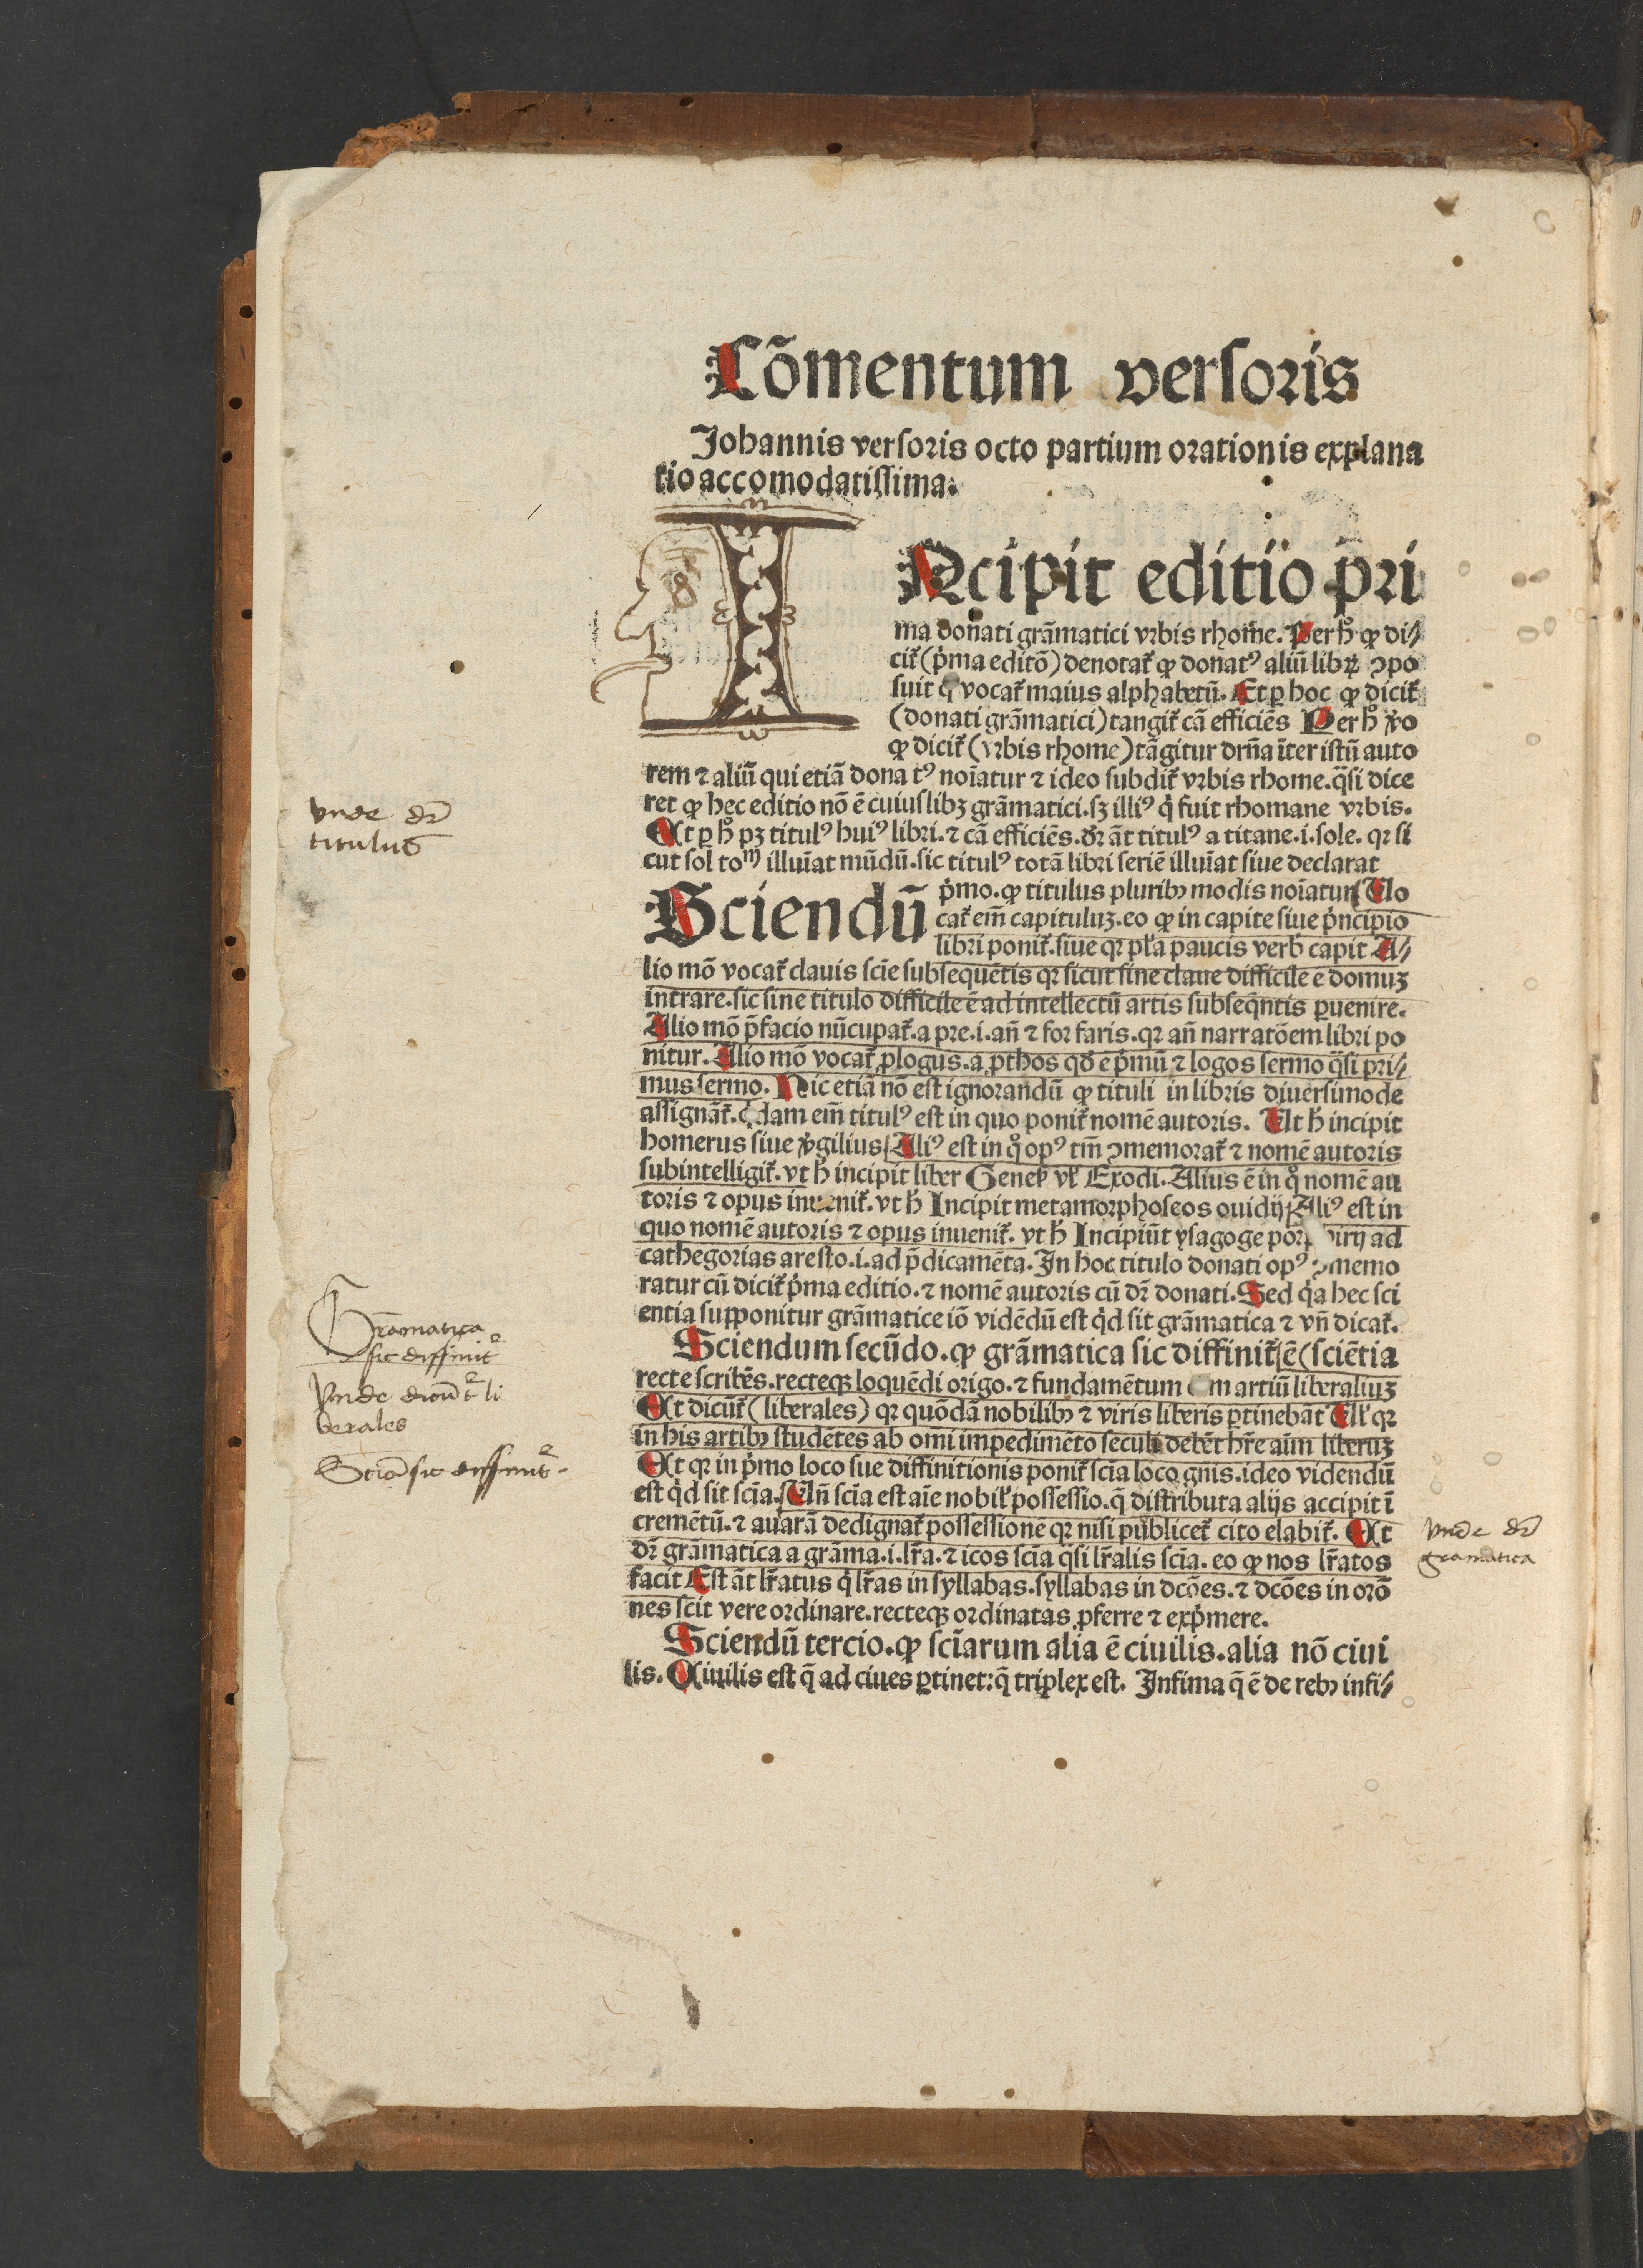 Cõmentum versoris
Johannis versoris octo partium orationis explana
tio accomodatissima.
INcipit editio pri
ma donati grãmatici vrbis rhome. Per hͦ ꝙ di⸗
cit᷑ (p̍ma editõ) denotat᷑ ꝙ donatꝰ aliũ libꝝ ꝯpo
suit q̍ vocat᷑ maius alphabetũ. Et ꝑ hoc ꝙ dicit᷑
(donati grãmatici) tangit᷑ cã efficiẽs Per hͦ v̾o
ꝙ dicit᷑ (vrbis rhome) tãgitur drña ĩter istũ auto
rem ⁊ aliũ qui etiã donatꝰ noĩatur ⁊ ideo subdit᷑ vrbis rhome. q̃si dice
ret ꝙ hec editio nõ ẽ cuiuslibꝫ grãmatici. sꝫ illiꝰ q̍ fuit rhomane vrbis.
Et ꝑ hͦ pꝫ titulꝰ huiꝰ libri. ⁊ cã efficiẽs. dr̃ ãt titulꝰ a titane .i. sole. qꝛ si
cut sol toᵐ illuĩat mũdũ. sic titulꝰ totã libri seriẽ illuĩat siue declarat
Sciendũ p̍mo. ꝙ titulus pluribꝰ modis noĩatur Uo
cat᷑ em̃ capituluꝫ. eo ꝙ in capite siue p̍ncipio
libri ponit᷑. siue qꝛ pl̃a paucis verb̾ capit A⸗
lio mõ vocat᷑ clauis scĩe subsequẽtis qꝛ sicut sine claue difficile ẽ domuꝫ
intrare. sic sine titulo difficile ẽ ad intellectũ artis subseq̃ntis ꝑuenire.
Alio mõ p̃facio nũcupat᷑. a pre .i. añ ⁊ for faris. qꝛ añ narratõem libri po
nitur. Alio mõ vocat᷑ ꝓlogus. a ꝓthos qd̾ ẽ p̍mũ ⁊ logos sermo q̃si pri⸗
mus sermo. Hic etiã nõ est ignorandũ ꝙ tituli in libris diuersimode
assignãt᷑. q̍dam em̃ titulꝰ est in quo ponit᷑ nomẽ autoris. Ut h̾ incipit
homerus siue v̾gilius Aliꝰ est in qͦ opꝰ tm̃ ꝯmemorat᷑ ⁊ nomẽ autoris
subintelligit᷑. vt h̾ incipit liber Genef̾ vl̾ Exodi. Alius ẽ in qͦ nomẽ au
toris ⁊ opus inuenit᷑. vt h̾ Incipit metamorphoseos ouidij Aliꝰ est in
quo nomẽ autoris ⁊ opus inuenit᷑. vt h̾ Incipiũt ysagoge porphirij ad
cathegorias aresto .i. ad p̃dicamẽta. In hoc titulo donati opꝰ ꝯmemo
ratur cũ dicit᷑ p̍ma editio. ⁊ nomẽ autoris cũ dr̃ donati. Sed q̍a hec sci
entia supponitur grãmatice iõ vidẽdũ est q̍d sit grãmatica ⁊ vñ dicat᷑.
Sciendum secũdo. ꝙ grãmatica sic diffinit᷑ ẽ (sciẽtia
recte scribẽs. recteqꝫ loquẽdi origo. ⁊ fundamẽtum m artiũ liberaliuꝫ
Et dicũt᷑ (liberales) qꝛ quõdã nobilibꝰ ⁊ viris liberis ꝑtinebãt Ul̾ qꝛ
in his artibꝰ studẽtes ab omĩ impedimẽto seculi debẽt hr̃e aĩm liberuꝫ
Et qꝛ in p̍mo loco sue diffinitionis ponit᷑ scĩa loco gñis. ideo videndũ
est q̍d sit scĩa. Uñ scĩa est aĩe nobil̾ possessio. q̃ distributa alijs accipit ĩ
cremẽtũ. ⁊ auarã dedignat᷑ possessionẽ qꝛ nisi publicet᷑ cito elabit᷑. Et
dr̃ grãmatica a grãma .i. lr̃a. ⁊ icos scĩa q̃si lr̃alis scĩa. eo ꝙ nos lr̃atos
facit Est ãt lr̃atus q̍ lr̃as in syllabas. syllabas in dcões. ⁊ dcões in orõ
nes scit vere ordinare. recteqꝫ ordinatas ꝓferre ⁊ exp̍mere.
Sciendũ tercio. ꝙ scĩarum alia ẽ ciuilis. alia nõ ciui
lis. Ciuilis est q̃ ad ciues ꝑtinet: q̃ triplex est. Infima q̃ ẽ de rebꝰ infi⸗
vnde dr̃
titulus
Grãmatica
sic diffinit᷑
Vnde dicũt᷑ li
berales
Sciã sic diffinit᷑.
vnde dr̃
gramatica